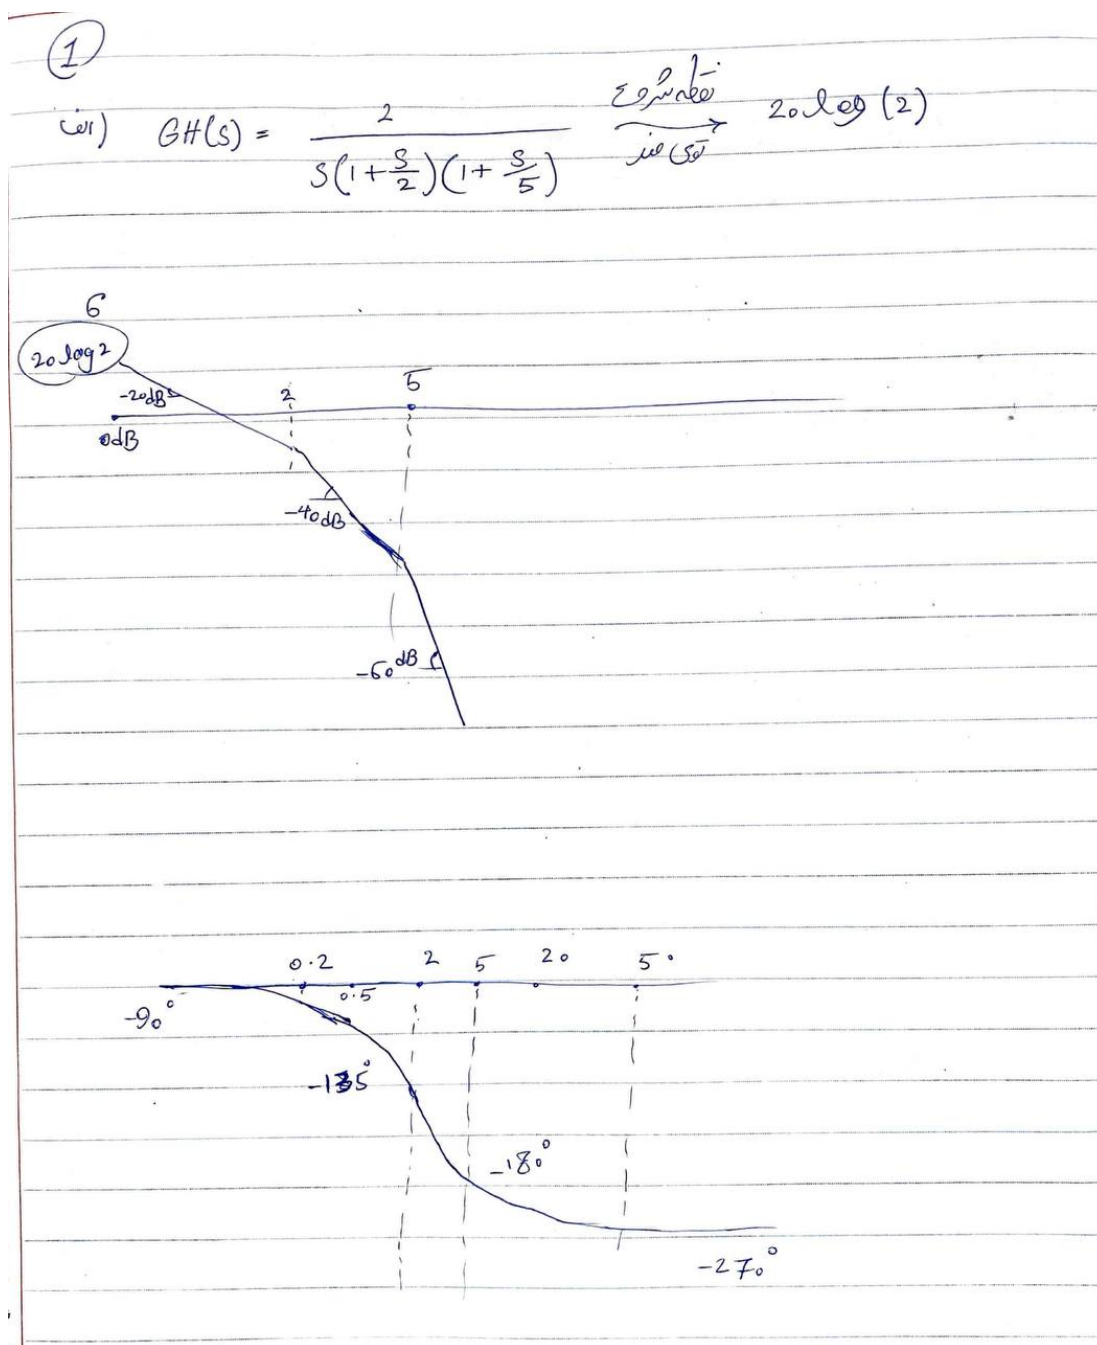 1
الف) GH(S) = 2 / S(1+S/2)(1+S/5) نقطه شروع 20 log (2)
6
20 log2
5
-20dB 2
0dB
-40dB
-60dB
0.2 2 5 20 50
0.5
-90°
-135°
-180°
-270°